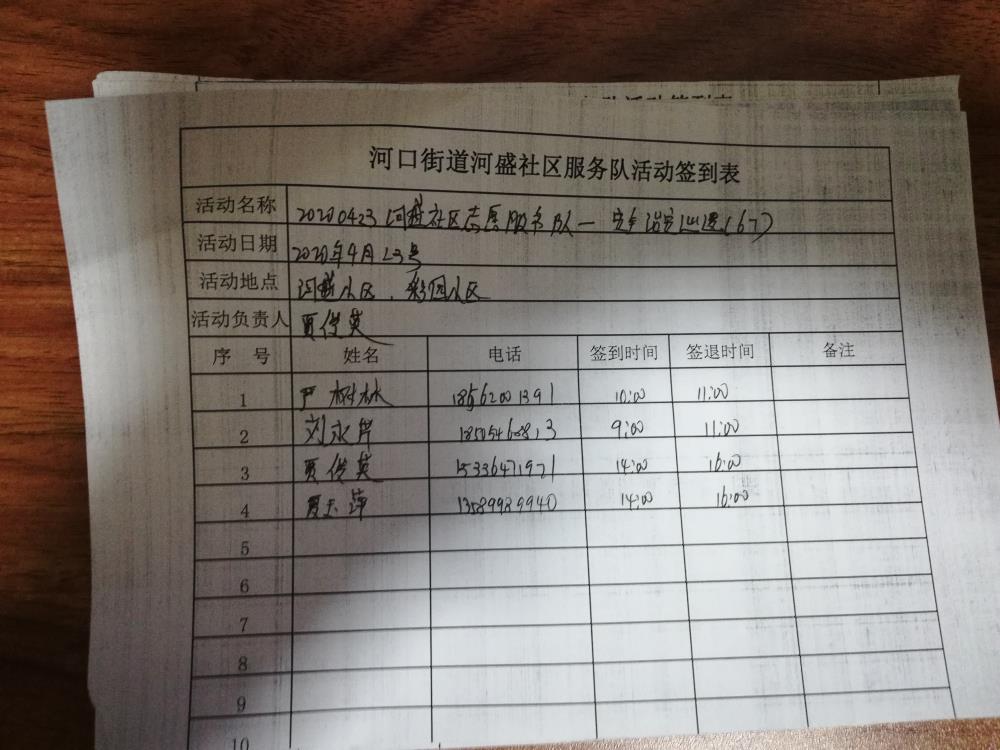 河口街道河盛社区服务队活动签到表
活动名称 20200423河盛社区志愿服务队一安全治安巡逻(67)
活动日期 2020年4月23号
活动地点 河盛小区、小区
活动负责人 贾俊英
序 号 姓名 电话 签到时间 签退时间 备注
1 严树林 18562001391 10:00 11:00
2 刘永芹 9:00 11:00
3 贾俊英 15336471971 14:00 16:00
4 贾玉萍 13589989940 14:00 16:00
5
6
7
8
9
10